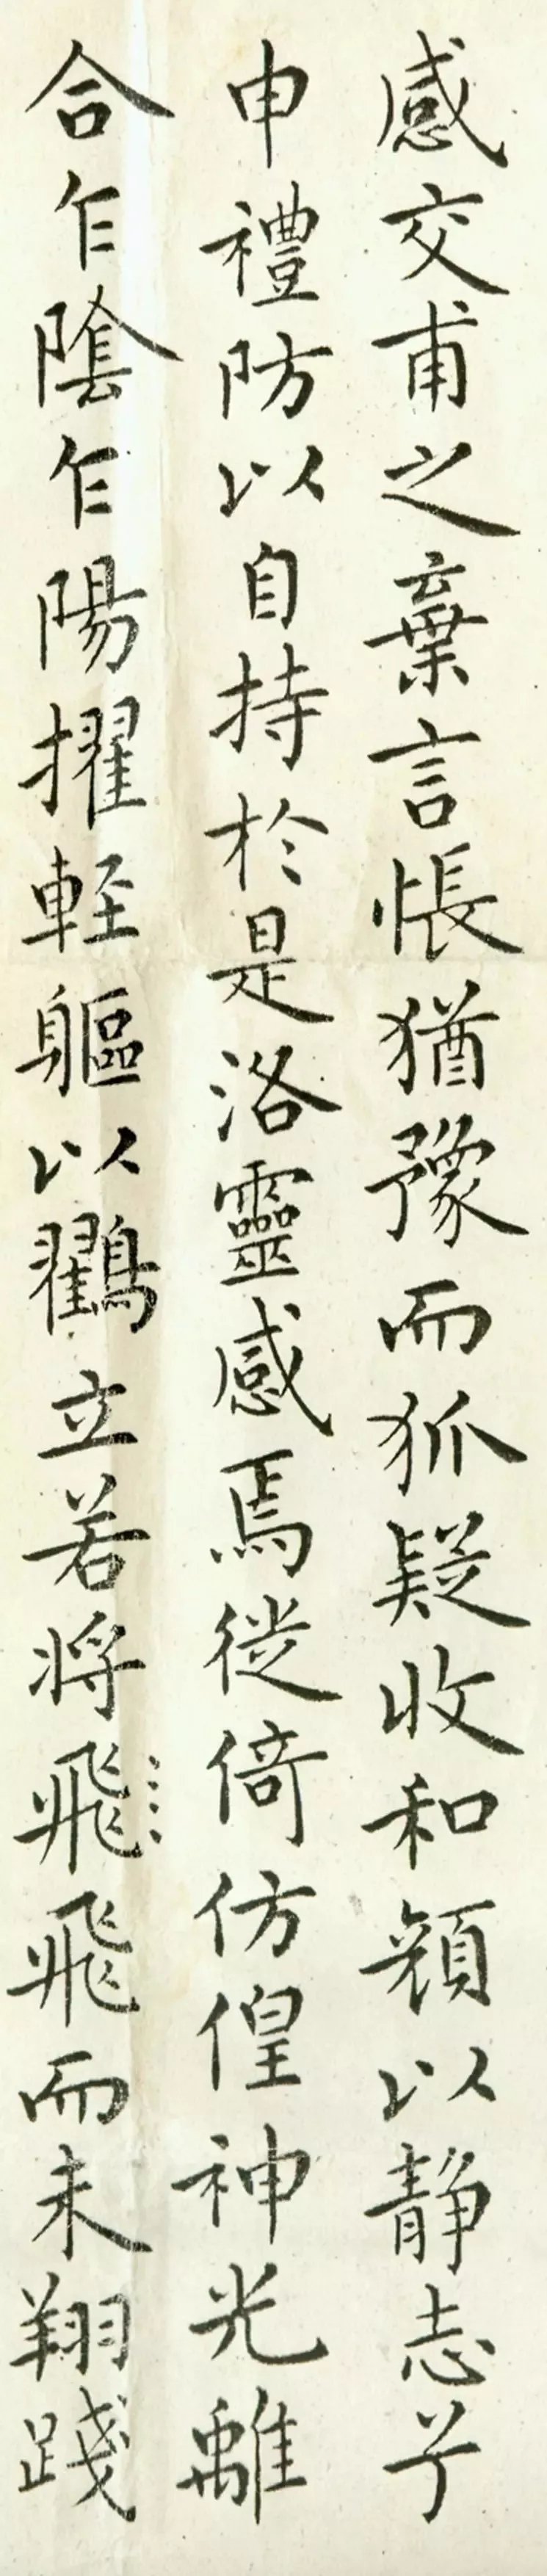 感交甫之棄言悵猶豫而狐疑收和顏以静志兮
申禮防以自持於是洛靈感焉徙倚仿偟神光離
合乍陰乍陽擢輕軀以鶴立若將飛飛而未翔踐